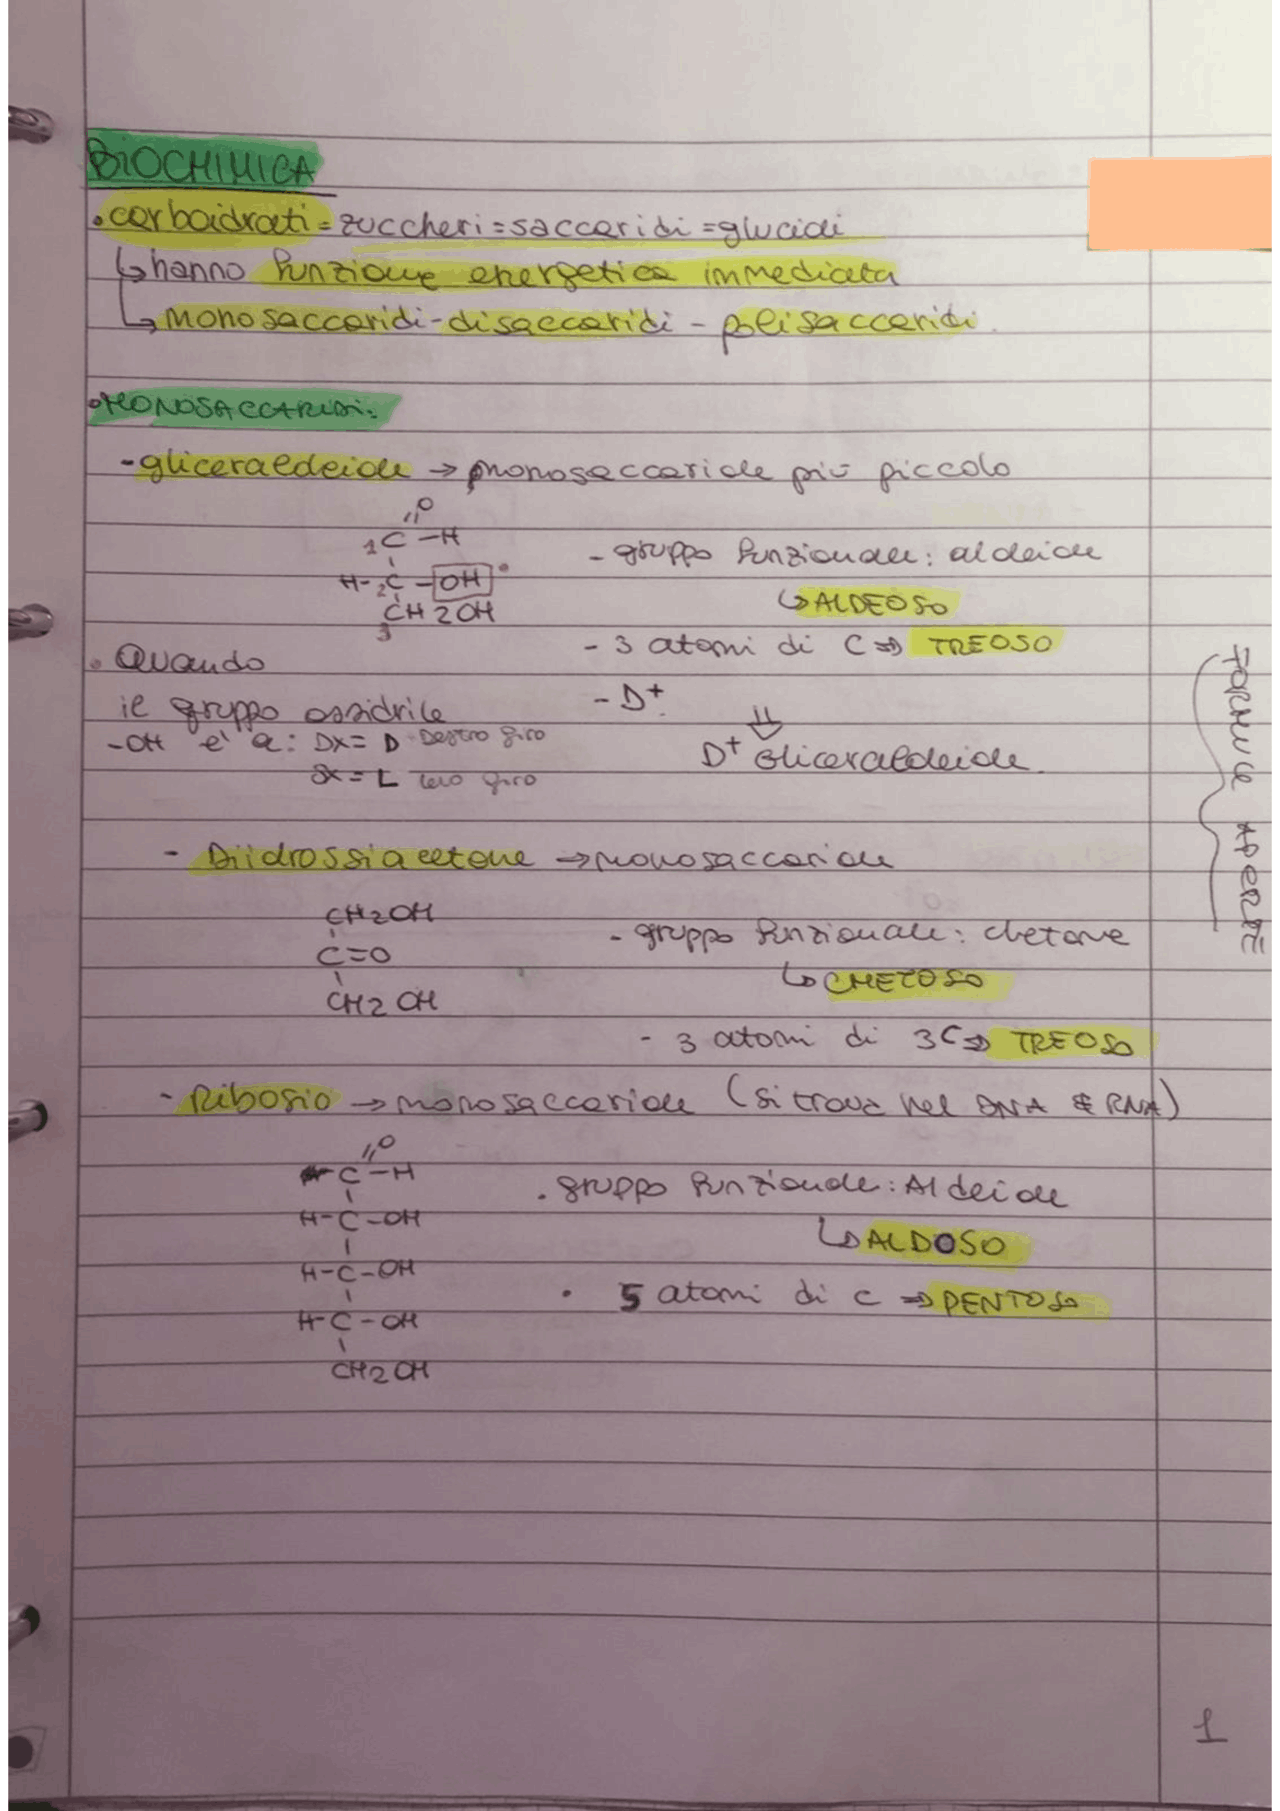 BIOCHIMICA
• carboidrati = zuccheri = saccaridi = glucidi
↳ hanno funzione energetica immediata
↳ monosaccaridi - disaccaridi - polisaccaridi.
• MONOSACCARIDI:
- gliceraldeide → monosaccaride più piccolo
O
1C - H
- gruppo funzionale: aldeide
H - 2C - OH
↳ ALDEOSO
CH2OH
3
- 3 atomi di C ⇒ TREOSO
• Quando
il gruppo ossidrile
- D+
-OH e' a: DX = D Destro giro
⇓
D+ Gliceraldeide.
SX = L Levo giro
FORMULE APERTE
- Diidrossiacetone → monosaccaride
CH2OH
- gruppo funzionale: chetone
C=O
↳ CHETOSO
CH2OH
- 3 atomi di 3C ⇒ TREOSO
- Ribosio → monosaccaride (si trova nel DNA e RNA)
O
C - H
. gruppo funzionale: Aldeide
H - C - OH
↳ ALDOSO
H - C - OH
• 5 atomi di C ⇒ PENTOSO
H - C - OH
CH2OH
1